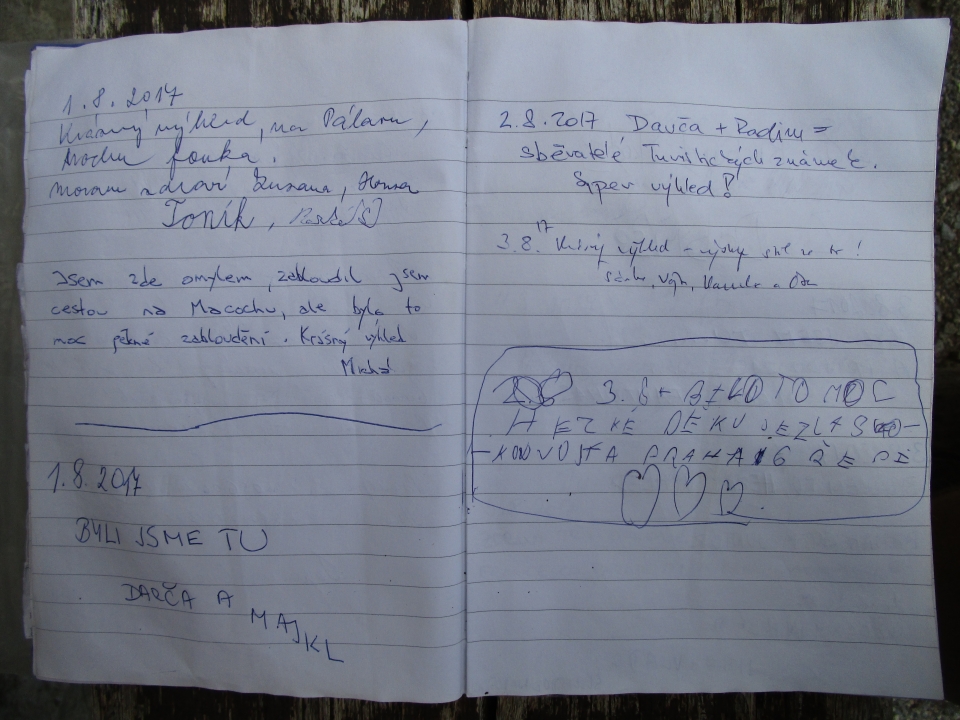 1.8.2017
Krásný výhled, na Pálavu,
trochu fouká.
Moravu zdraví Zuzana, Honza
Toník,
Jsem zde omylem, zabloudil jsem
cestou na Macochu, ale bylo to
moc pěkné zabloudění. Krásný výhled
Michal
1.8.2017
BYLI JSME TU
DARČA A
MAJKL
2.8.2017 Davča + Radim =
sběratelé Turistických známek.
Super výhled!
3.8.17 Krásný výhled
3. 8 BILO TO MOC
HEZKÉ DĚKU
PRAHA 6 ŘEPI